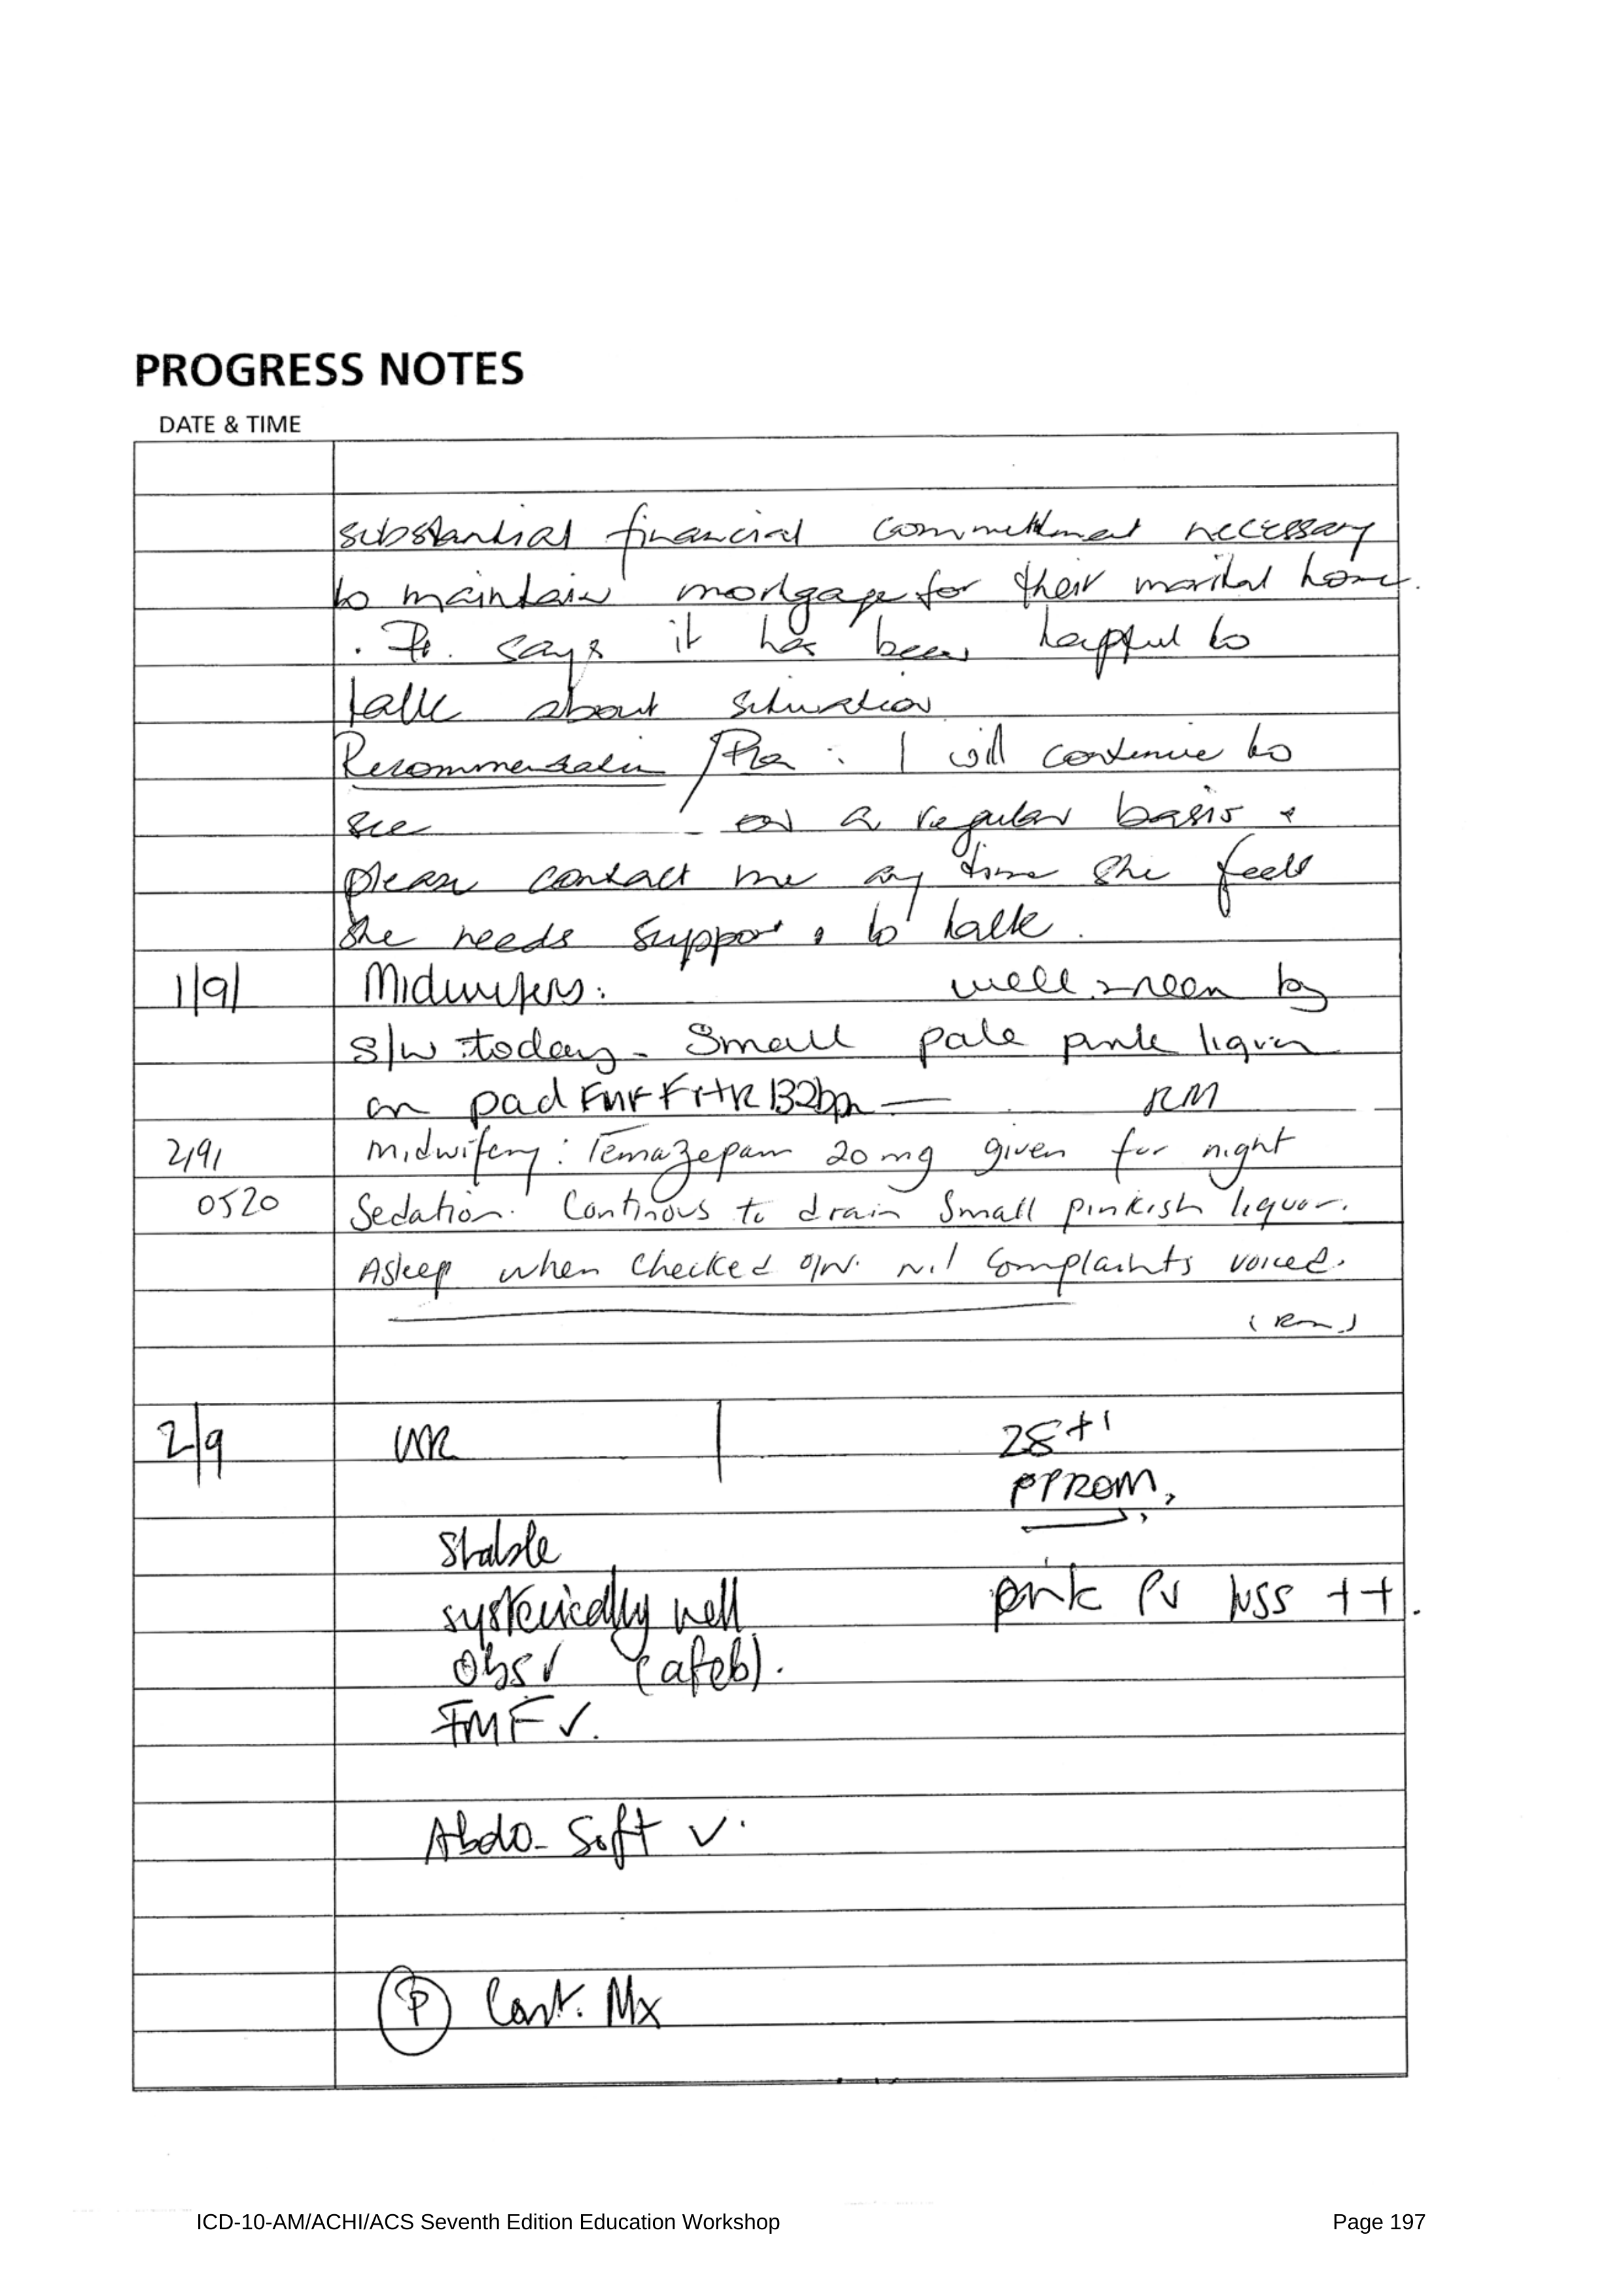 PROGRESS NOTES
DATE & TIME
substantial financial committment necessary
to maintain mortgage for their marital home.
. Pt. says it has been helpful to
talk about situation
Recommendation / Plan : I will continue to
see on a regular basis &
please contact me any time she feels
she needs support & to talk.
1/9/ Midwifery: well seen by
S/W today - Small pale pink liquor
on pad FMF FHR 132bpm RM
2/9/ Midwifery: Temazepam 20mg given for night
0520 Sedation. Continous to drain Small pinkish liquor.
Asleep when checked o/w. nil complaints voiced.
(RM)
2/9 WR 28+1
PPROM,
Stable
systemically well pink PV loss ++.
Obs ✓ (afeb).
FMF ✓.
Abdo - Soft ✓.
Ⓟ Cont. Mx
ICD-10-AM/ACHI/ACS Seventh Edition Education Workshop Page 197